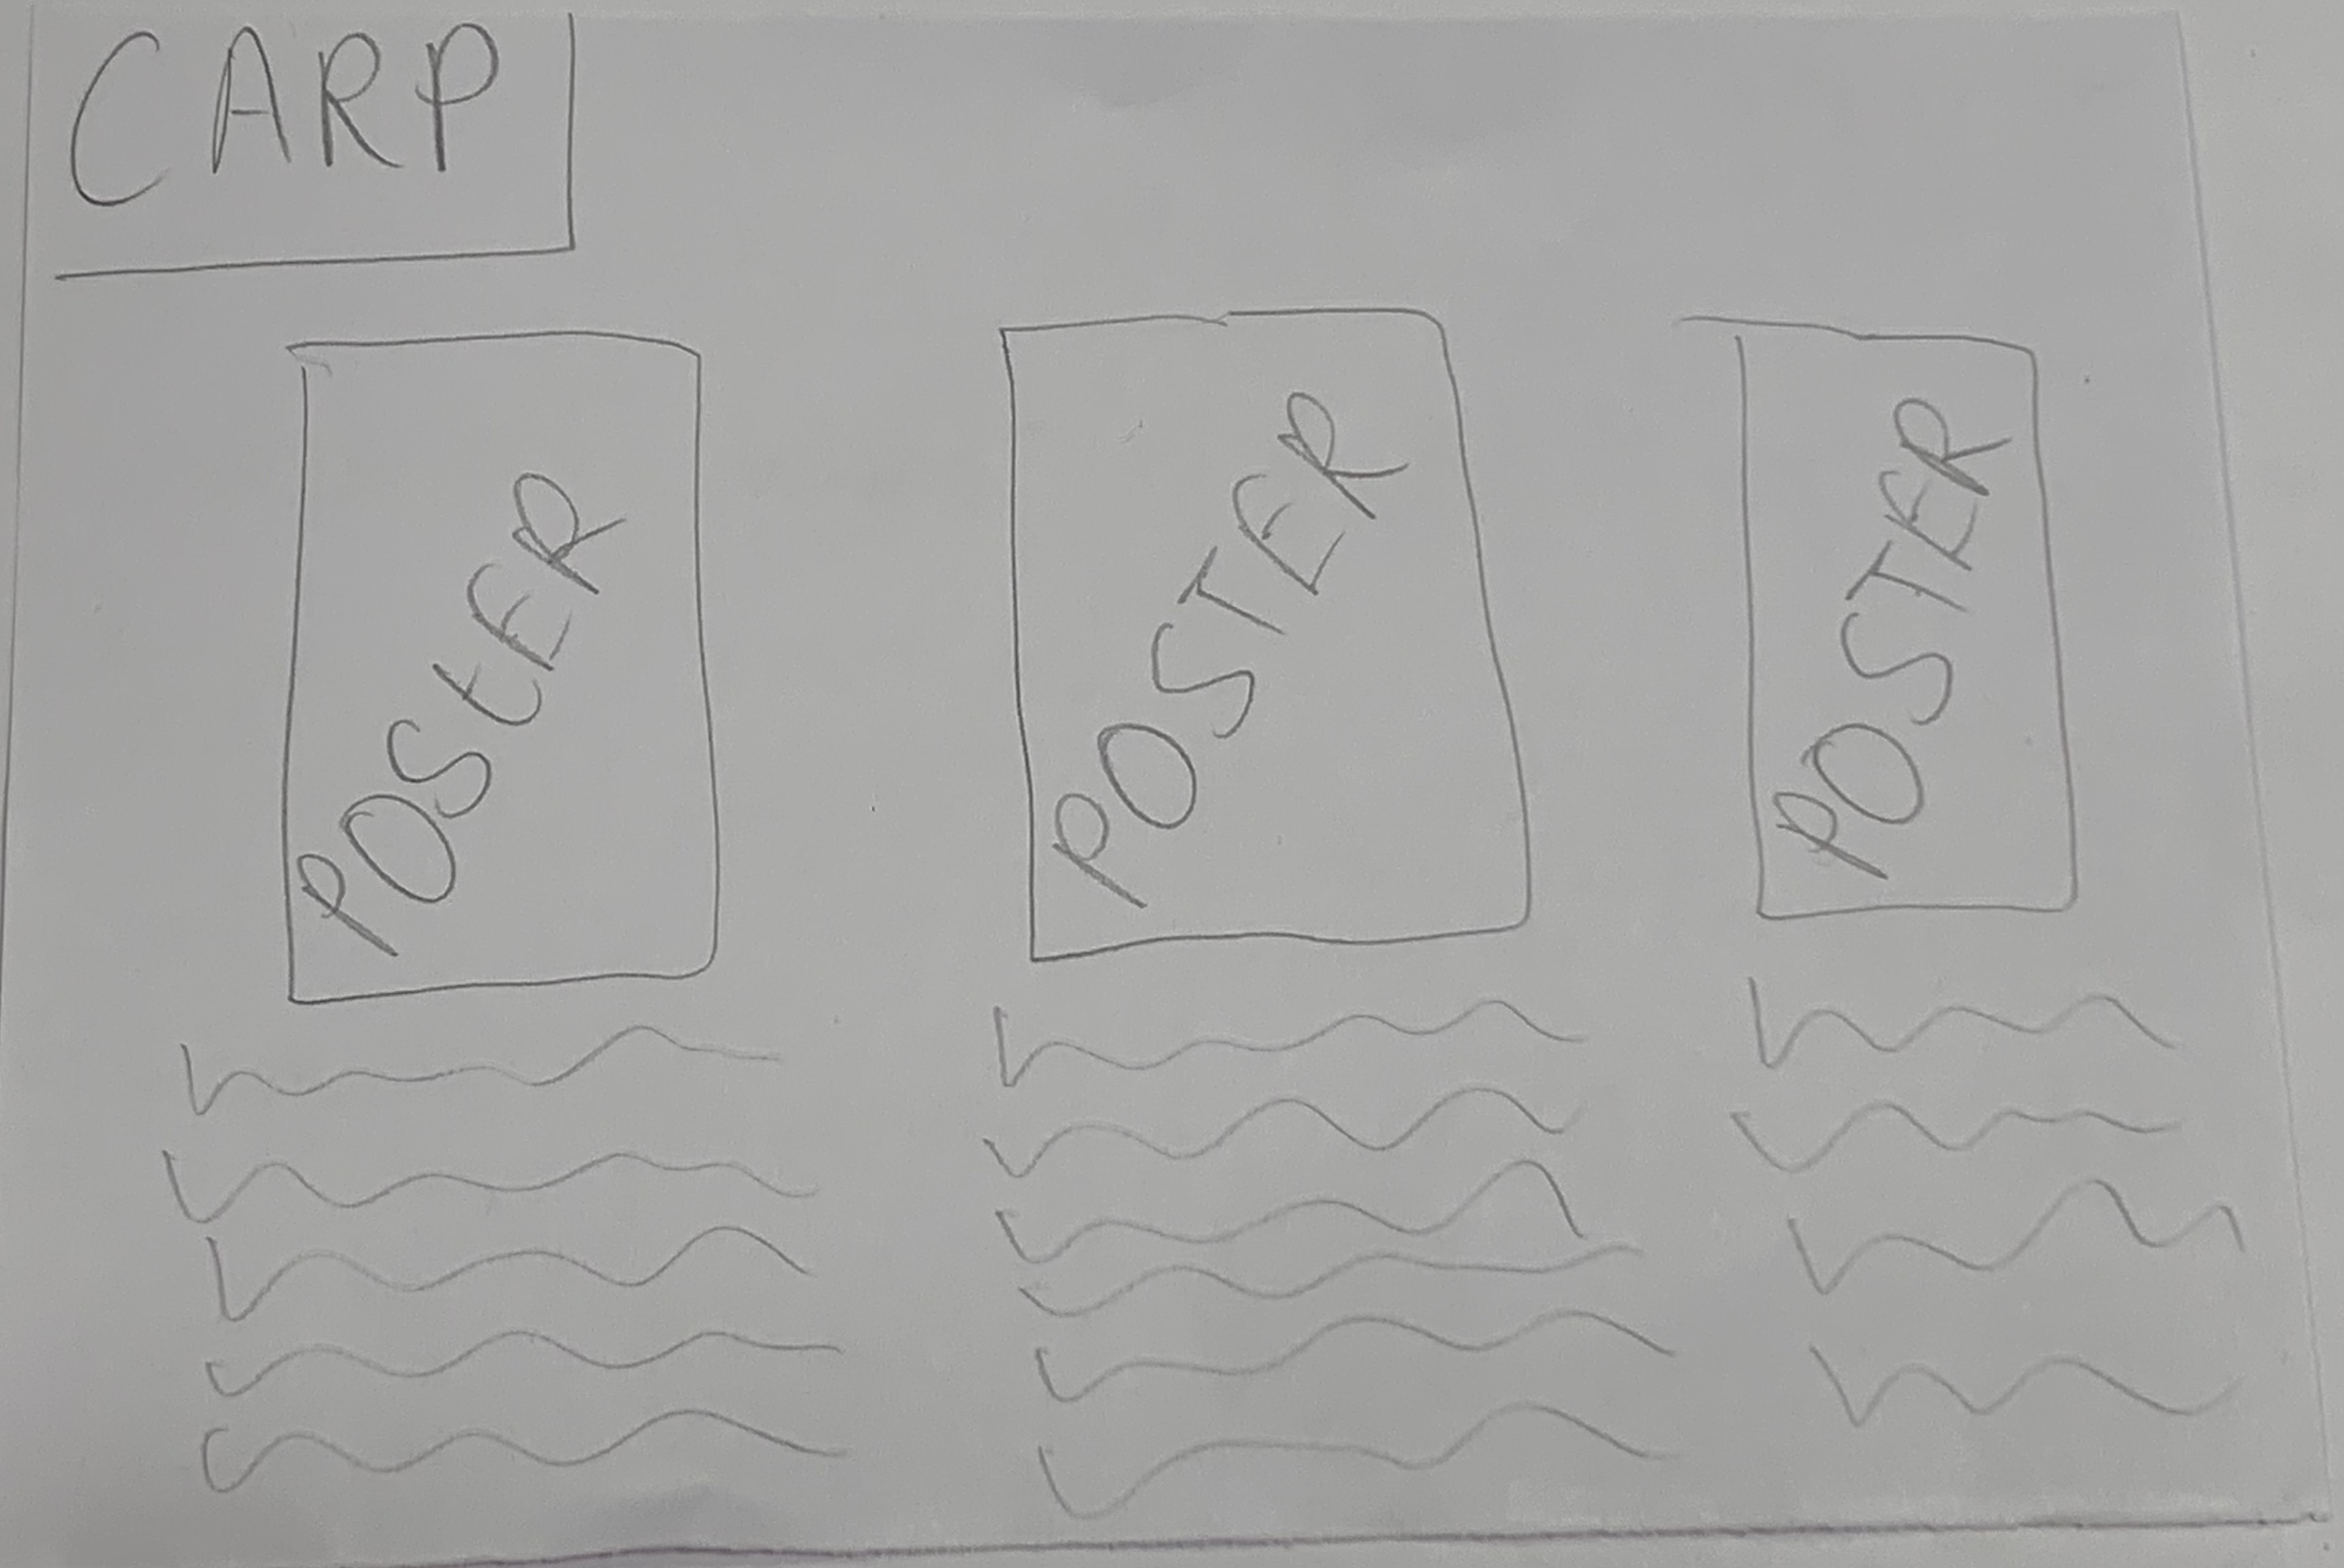 CARP
POSTER
POSTER
POSTER